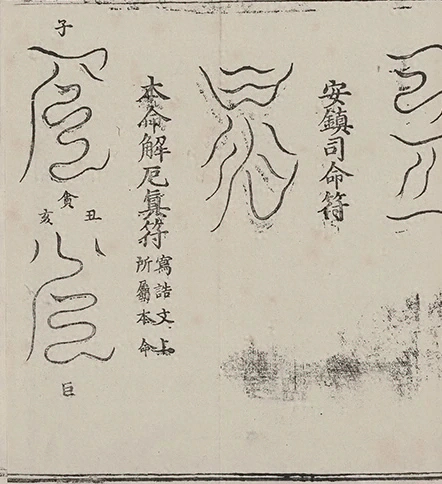 安鎮司命符
本命解厄真符
寫誥文上
所屬本命
子
貪
丑
亥
巨